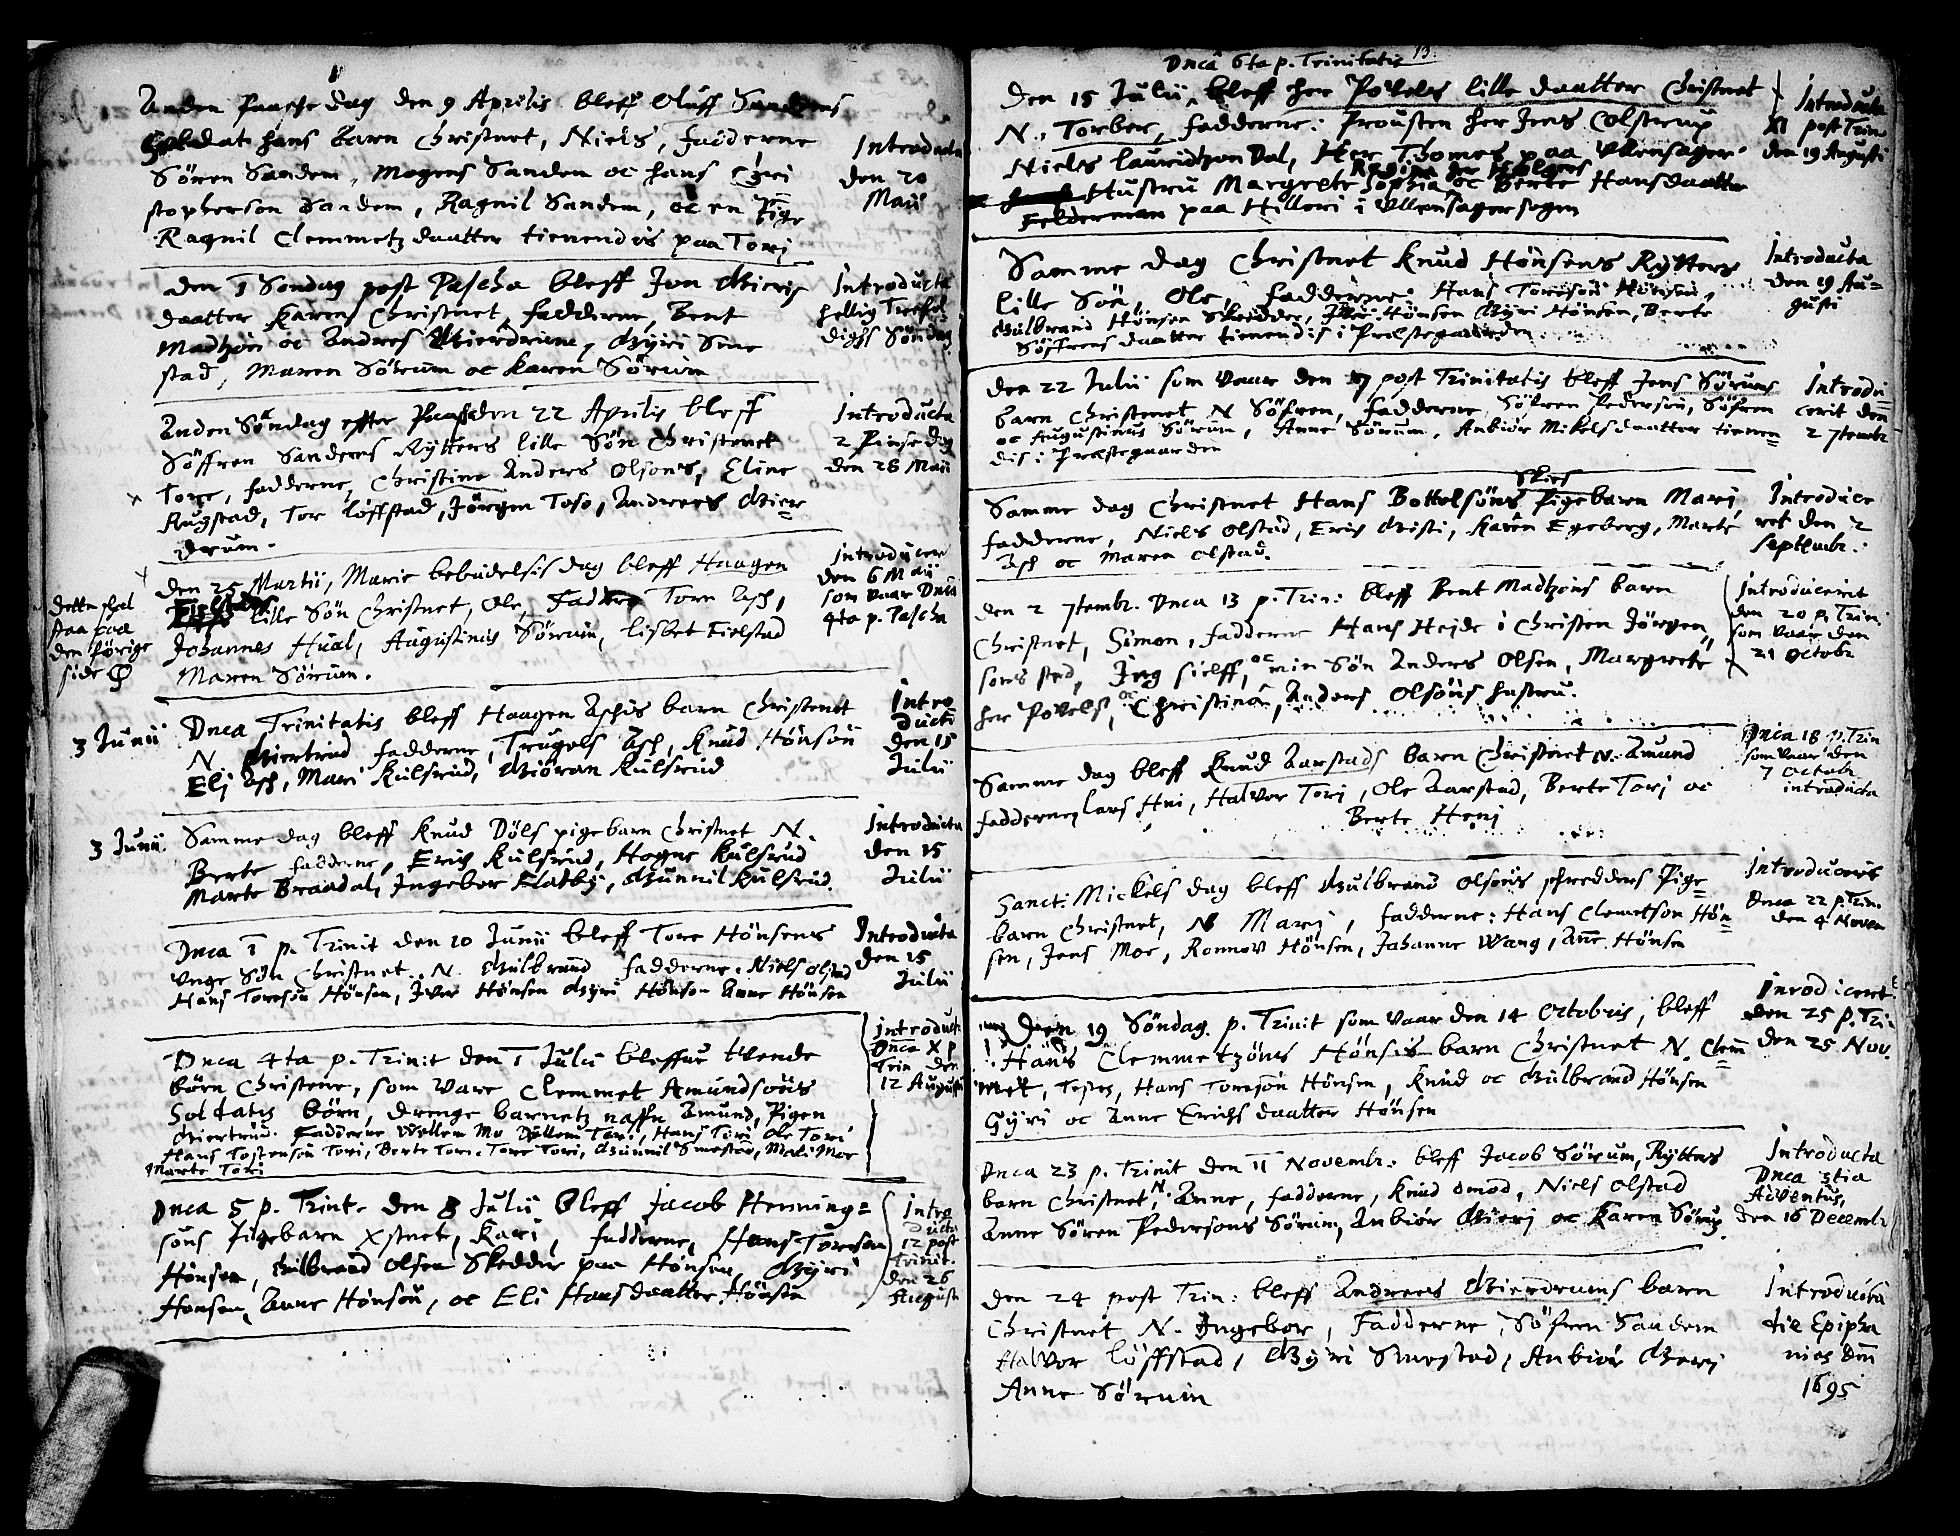 Anden Paasche dag den 9 Aprilis bleff Oluff Sandens
Soldat hans barn Christnet, Niels, fadderne
Sören Sanden, Mogens Sanden oc hans Chri
stopherson Sandem, Ragnil Sandem, oc en Pige
Ragnil Clemmetz daatter tienendis paa Tori
Introducta
den 20
Maii
den 1 Söndag post Pascha bleff Jon Gieris
daatter Karen Christnet, fadderne, Bent
Madtzön oc Andres Gierdrum, Gyri Sme
stad, Maren Sörum oc Karen Sörum
Introducta
hellig Trefol
dighs Söndag
Anden Söndag effter Paaske den 22 Aprilis bleff
Söffren Sandens Rÿtters lille Sön Christenet
Tore, fadderne, Christine Anders Olsons, Eline
Augstad, Tor Löffstad, Jörgen Toso, Andrees Gier=
drum.
Introducta
2 Pinse dag
den 28 Maii
den 25 Martii, Marie bebudelsis dag bleff Haagen
lille Sön Christnet, Ole, Fadderne Tore Asch,
Johannes Hual, Augustinus Sörum, lisbet Fielstad
Maren Sörum.
dette skal
staa paa
den förige
side
Introducere
den 6 Maii
som vaar Dnca
4ta p. Pascha
3 Junii
Dnca Trinitatis bleff Haagen Aschis barn Christenet
N. Giertrud fadderne, Trugels Asch, Knud Hönson
Eli Asch, Mari Kulsrud, Giöran Kulsrud
Intro
ducti
den 15
Julii
3 Junii
Samme dag bleff Knud Döls pigebarn Christnet N.
Berte fadderne, Erich Kulsrud, Hogne Kulsrud
Marte Braadal, Ingebor Flatbÿ, Gunnil Kulsrud.
Introducta
den 15
Julii
Dnca 1 p. Trinit den 10 Junii bleff Tore Hönsens
unge Sön Christnet. N. Gulbrand fadderne. Niels Olstad
Hans Toreson Hönsen, Iver Hönsen Gyri Hönsen Anne Hönsen
Introducta
den 15
Julii
Dnca 4ta p. Trinit den 1 Julii bleffue tvende
börn Christene, som vare Clemmet Amundsöns
Soldatis börn, drenge barnetz naffn Amund, Pigen
Giertrud. Fadderne Mo Tori, Hans Tori, Ole Tori
Hans Tostenson Tori, Berte Tori. Tore Tori, Gunnil Smestad, Mari Moe
Marte Tori
introduct
Dnca X p
Trin den
12 Augusti
Dnca 5 p. Trint. den 8 Julii bleff Jacob Henning=
sons Pigebarn Xstnet, Kari, fadderne, Hans Toreson
Hönsen, Gulbrand Olsen Skedder paa Hönsen, Gyri
Honsen, Anne Hönson, oc Eli Hansdaatter Hönsen
Intro
ducta
12 post
Trinit.
den 26
Augusti
13.
Dnca 6ta p. Trinitatis
den 15 Julii, bleff her Povels lille daatter Christnet
N., Torber, fadderne: Prousten her Jens Colstrup
Niels lauridtzon Dal, Her Thomes paa Ullensager
Hustru Margrete Sophia oc Berte Hansdaatter
Felderman paa Hilleri i Ullensager sogen
Introducta
XI post Trin
den 19 Augusti
Samme dag Christnet Knud Hönsens Rÿtters
lille Sön, Ole, fadderne: Hans Toresön Hönsen,
Gulbrand Hönsen Skedder, Hönsen Gÿri Hönsen, Berte
Söfrens daatter tienendis i Præstegaarden
Introducta
den 19 Au=
gusti
den 22 Julii som vaar den 7 post Trinitatis bleff Jens Sörums
barn Christenet N Söfren, fadderne, Söfren Pederson, Söfren
oc Augustinus Sörum, Anne Sörum, Anbiör Mikelsdaatter tienen=
dis i Præstegaarden
Introdu=
cerit den
2 7tembr
Skies
Samme dag Christnet Hans Bottelsöns Pigebarn Mari
fadderne, Niels Olstad, Erich Gisti, Karen Egeberg, Marte
Asch oc Maren Olstad.
Introduce
ret den 2
Septembr:
den 2 7tembr. Dnca 13 p. Trin: bleff Bent Madtzöns barn
Christnet, Simon, fadderne Hans Hejde i Christen Jörgen
sons sted, Jeg sielff, oc min Sön Anders Olsen, Margrete
her Povels, oc Christina, Anders Olsöns hustru.
Introducerit
den 20 p. Trin
som vaar den
21 octobr
Samme dag bleff Knud Aarstads barn Christnet N. Amund
fadderne, Lars Hni, Halvor Tori, Ole Aarstad, Berte Tori oc
Berte Heni
Dnca 18 p. Trin
som vaar den
7 octobr
introducta
Sanct: Mickels dag bleff Gulbrand Olsöns schredders Pige=
barn Christnet, N Mari, fadderne: Hans Clemetson Hön=
sen, Jens Moe, Ronnov Hönsen, Johanne Wang, Añe Hönsen
Introduceris
Dnca 22 p. Trin.
den 4 Novem
Den 19 Söndag p. Trinit som vaar den 14 Octobris, bleff
Hans Clemmetzöns Hönsis barn Christnet N. Clem̃
met, Testes, Hans Toresön Hönsen, Knud oc Gulbrand Hönsen
Gÿri oc Anne Erichsdaatter Hönsen
Inrodiceret
den 25 p. Tri
den 25 Nov.
Dnca 23 p. Trinit den 11 Novembr: bleff Jacob Sörum, Rÿtters
barn Christnet, N. Anne, fadderne, Knud Omod, Niels Olstad
Anne Sören Pedersons Sörum, Anbiör Gieri oc Karen Sörum.
Introducta
Dnca 3tia
Adventus,
den 16 Decembr
den 24 post Trin: bleff Andrees Gierdrums barn
Christnet N. Ingebor, Fadderne, Söfren Sandem
Halvor Löffstad, Gyri Smestad, Anbiör Gieri
Anne Sörum
Introducta
die Epipha
nias den
1695